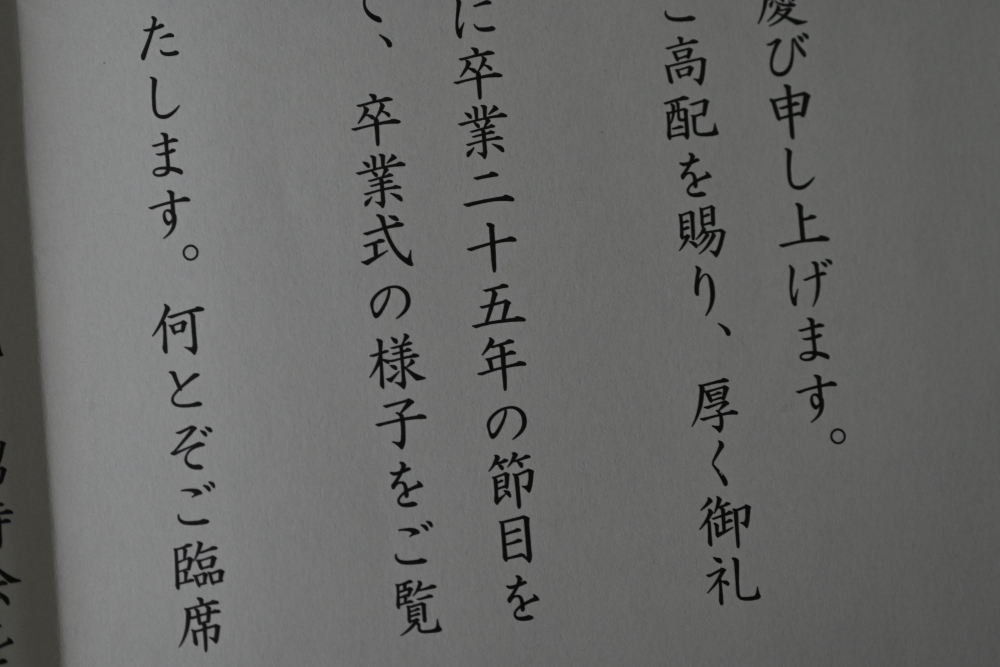 慶び申し上げます。
ご高配を賜り、厚く御礼
に卒業二十五年の節目を
て、卒業式の様子をご覧
たします。何とぞご臨席